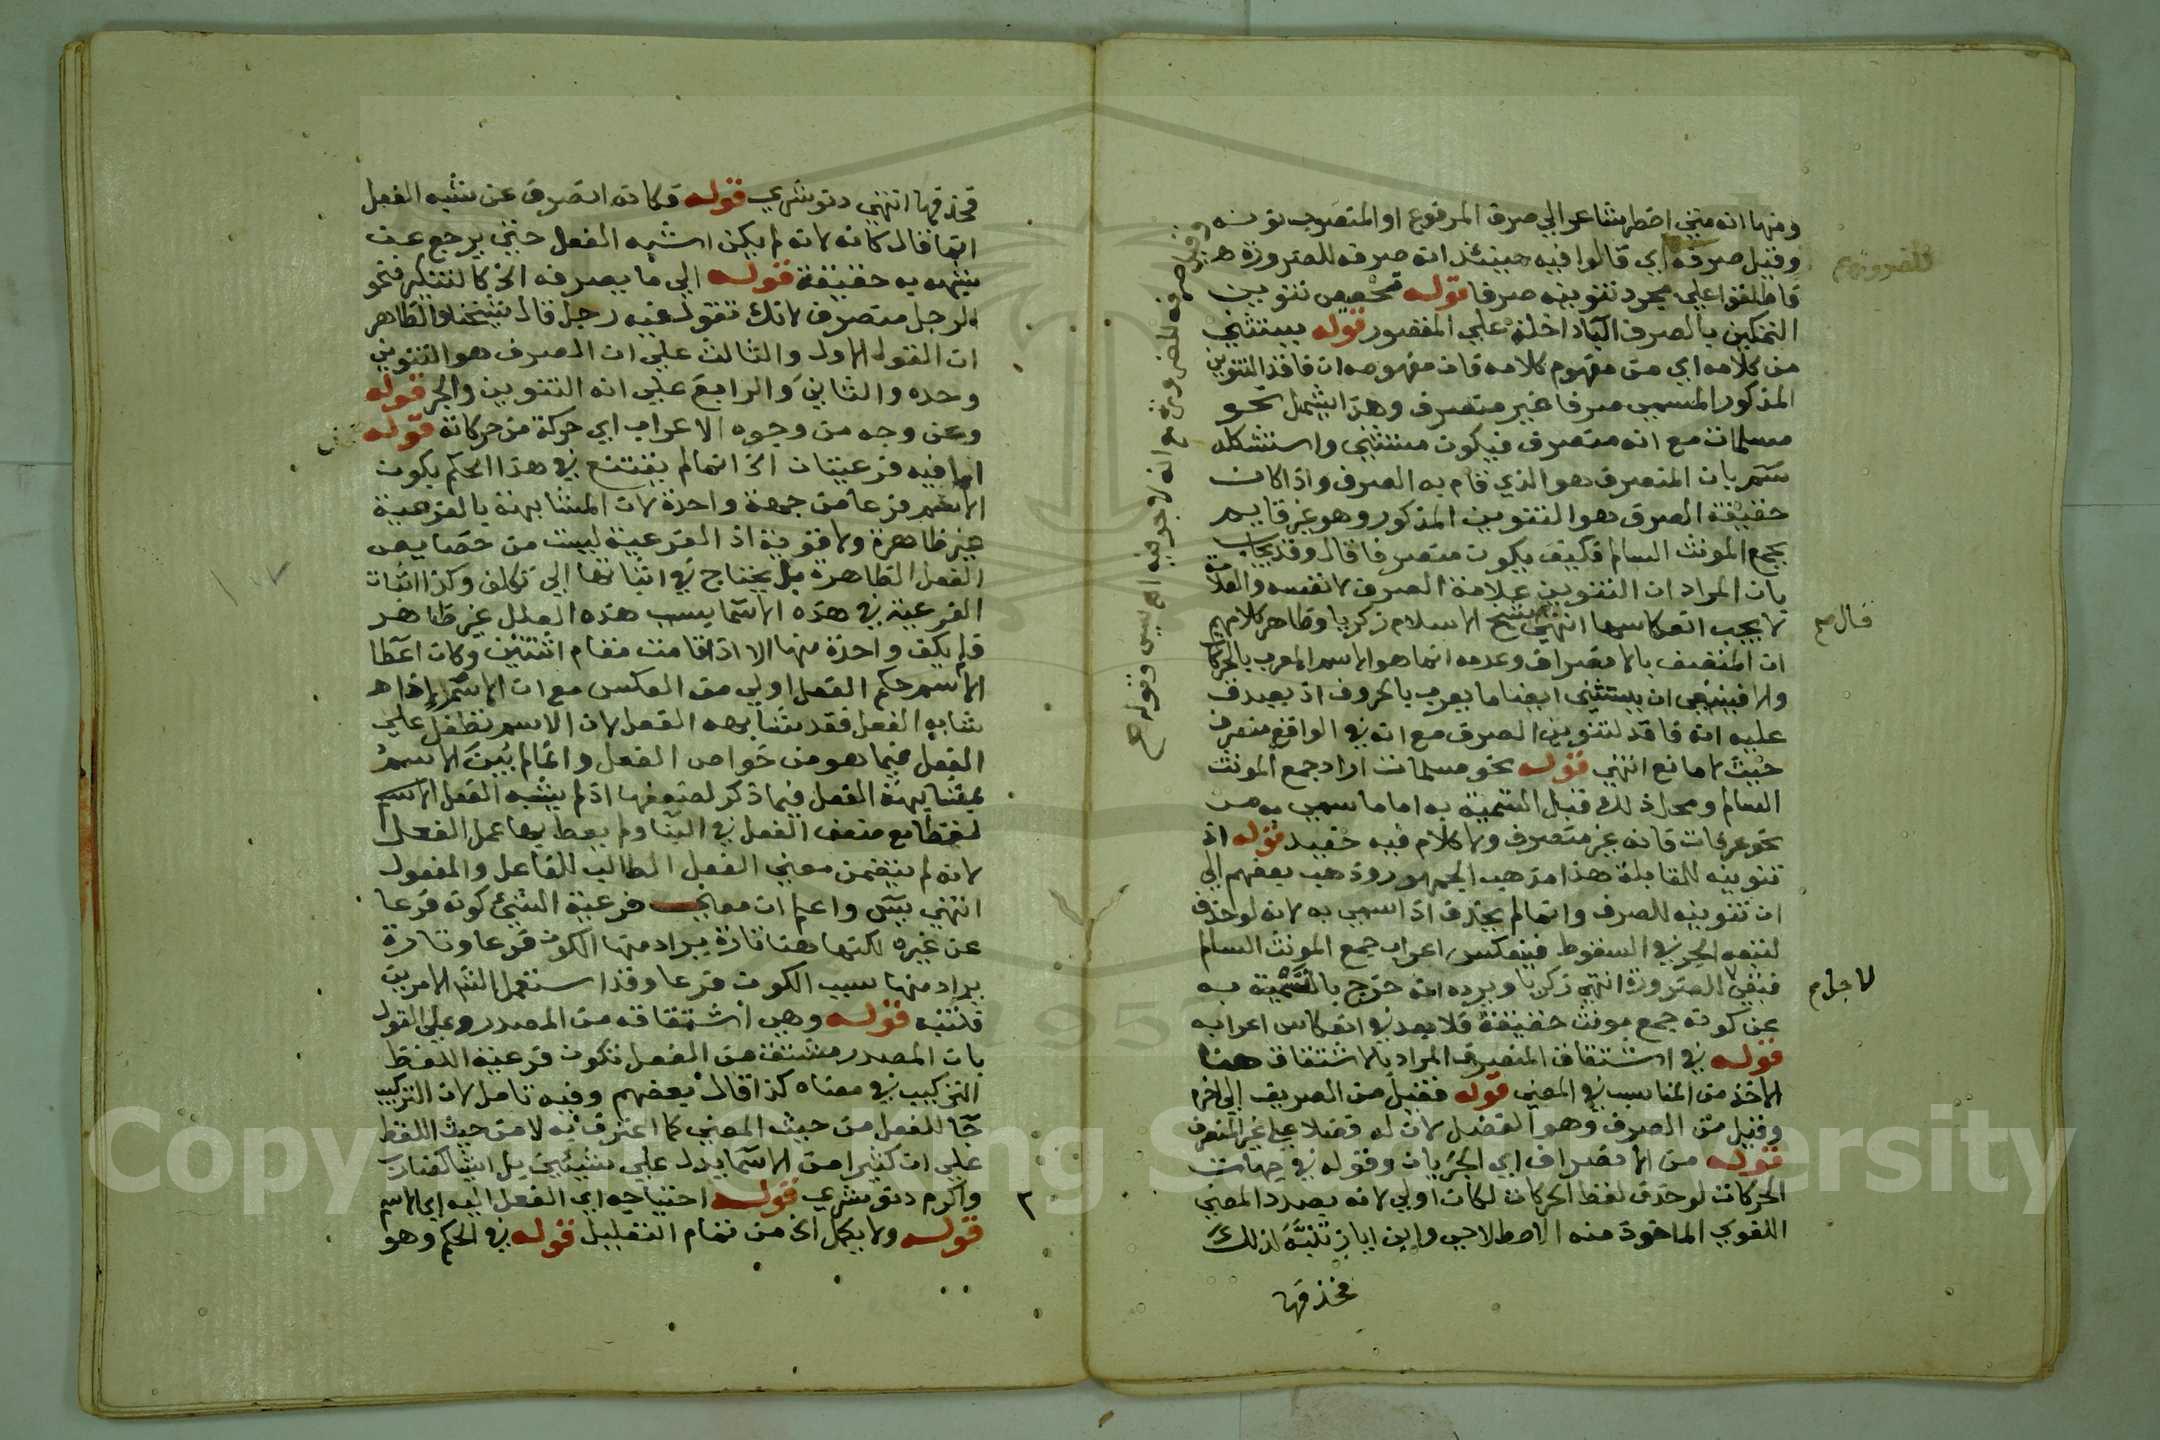 ومنها انه متي اضطر شاعر الي صرف المرفوع او المنصوب نونه
وقيل صرفه اي قالوا فيه حينئذ انه صرفه للضرورة هـ
فاطلقوا علي مجرد تنوينه صرفا قوله تخصيص تنوين
التمكين بالصرف الباء داخلة علي المقصور قوله يستثني
من كلامه اي من مفهوم كلامه فان مفهومه ان فاقد التنوين
المذكور المسمي صرفا غير منصرف وهذا يشمل نحو
مسلمات مع انه منصرف فيكون مستثني واستشكله
سم بان المنصرف هو الذي قام به الصرف واذا كان
حقيقة الصرف هو التنوين المذكور وهو غير قايم
بجمع المونث السالم فكيف يكون منصرفا قال وقد يجاب
بان المراد ان التنوين علامة الصرف لا نفسه والعلامة
لا يجب انعكاسها انتهي شيخ الاسلام زكريا وظاهر كلامهم
ان المتصف بالانصراف وعدمه انما هو الاسم المعرب بالحركات
والا فينبغي ان يستثني ايضا ما يعرب بالحروف اذ يصدق
عليه انه فاقد لتنوين الصرف مع انه في الواقع منصرف
حيث لا مانع انتهي قوله نحو مسلمات اراد جمع المونث
السالم ومحل ذلك قبل التسمية به اما ما سمي به من
نحو عرفات فانه غير منصرف ولا كلام فيه حفيد قوله اذ
تنوينه للمقابلة هذا مذهب الجمهور وذهب بعضهم الي
ان تنوينه للصرف وانما لم يحذف اذا سمي به لانه لو حذف
لتبعه الجر في السقوط فينعكس اعراب جمع المونث السالم
فبقي الضرورة انتهي زكريا ويرده انه خرج بالتسمية به
عن كونه جمع مونث حقيقة فلا بعد في انعكاس اعرابه
قوله في اشتقاق المنصرف المراد بالاشتقاق هنا
الاخذ من المناسب في المعني قوله فقيل من الصريف الي اخره
وقيل من الصرف وهو الفضل لان له فضلا علي غير المنصرف
قوله من الانصراف اي الجريان وقوله في جهات
الحركات لو حذف لفظ الحركات لكان اولي لانه بصدد المعني
اللغوي الماخوذ منه الاصطلاحي وابن اياز تنبه لذلك
فحذفها
للضرورة صح
قال صح
لاجل صح
فحذفها انتهي دنوشري قوله فكانه انصرف عن شبه الفعل
انما قال كانه لانه لم يكن اشبه الفعل حتي يرجع عن
شبهه به حقيقة قوله الي ما يصرفه الخ كالتنكير فنحو
الرجل منصرف لانك تقول فيه رجل قال شيخنا والظاهر
ان القول الاول والثالث علي ان الصرف هو التنوين
وحده والثاني والرابع علي انه التنوين والجر قوله
وعن وجه من وجوه الاعراب اي حركة من حركاته قوله
اما فيه فرعيتان الخ انما لم يقتنع في هذا الحكم بكون
الاسم فرعا من جهة واحدة لان المشابهة بالفرعية
غير ظاهرة ولا قوية اذ الفرعية ليست من خصايص
الفعل الظاهرة بل يحتاج في اثباتها الي تكلف وكذا اثبات
الفرعية في هذه الاسما بسبب هذه العلل غير ظاهر
فلم يكف واحدة منها الا اذا قامت مقام اثنتين وكان اعطا
الاسم حكم الفعل اولي من العكس مع ان الاسم اذا
شابه الفعل فقد شابهه الفعل لان الاسم تطفل علي
الفعل فيما هو من خواص الفعل وانما لم يبن الاسم
بمشابهة الفعل فيما ذكر لضعفها اذ لم يشبه الفعل الاسم
لفظا مع ضعف الفعل في البنا ولم يعط بها عمل الفعل
لانه لم يتضمن معني الفعل الطالب للفاعل والمفعول
انتهي يس واعلم ان معني فرعية الشيئ كونه فرعا
عن غيره لكنها هنا تارة يراد منها الكون فرعا وتارة
يراد منها سبب الكون فرعا وقد استعمل الشم الامرين
فتنبه قوله وهي اشتقاقه من المصدر وعلي القول
بان المصدر مشتق من الفعل تكون فرعية اللفظ
التركيب في معناه كذا قال بعضهم وفيه تامل لان التركيب
جا للفعل من حيث المعني كما اعترف به لا من حيث اللفظ
علي ان كثيرا من الاسما يدل علي شيئين بل اشيا كضارب
واكرم دنوشري قوله احتياجه اي الفعل اليه اي الاسم
قوله ولا يكمل الخ من تمام التعليل قوله في الحكم وهو
٢